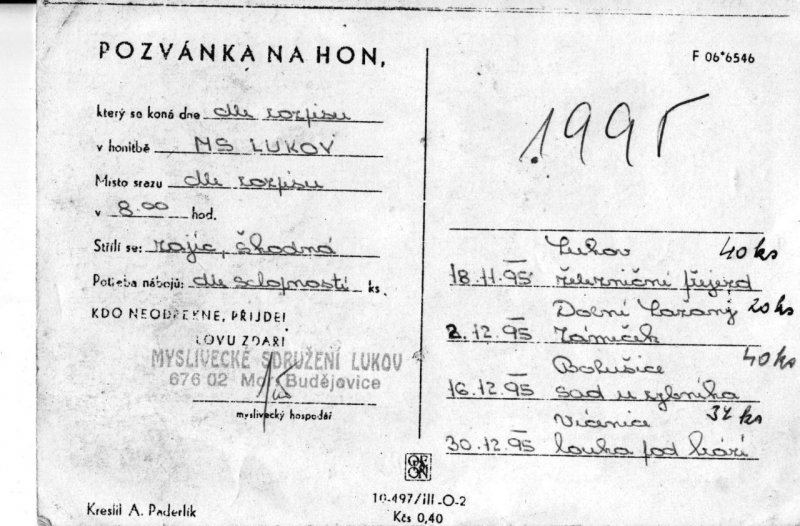 POZVÁNKA NA HON,
který se koná dne dle rozpisu
v honitbě MS LUKOV
Místo srazu dle rozpisu
v 8.00 hod.
Střílí se: zajíc, škodná
Potřeba nábojů: dle schopností ks
KDO NEODŘEKNE, PŘIJDE!
LOVU ZDAR!
MYSLIVECKÉ SDRUŽENÍ LUKOV
676 02 Mor. Budějovice
myslivecký hospodář
Kreslil A. Paderlík
F 06*6546
1995
Lukov 40 ks
18.11.95 železniční přejezd
Dolní Lažany 20 ks
2.12.95 Zámeček
Bohušice 40 ks
16.12.95 sad u rybníka
Vícenice 34 ks
30.12.95 louka pod hrází
10-497/III-O-2
Kčs 0,40